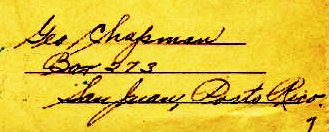 Geo Chapman
Box 273
San Juan, Porto Rico.
7